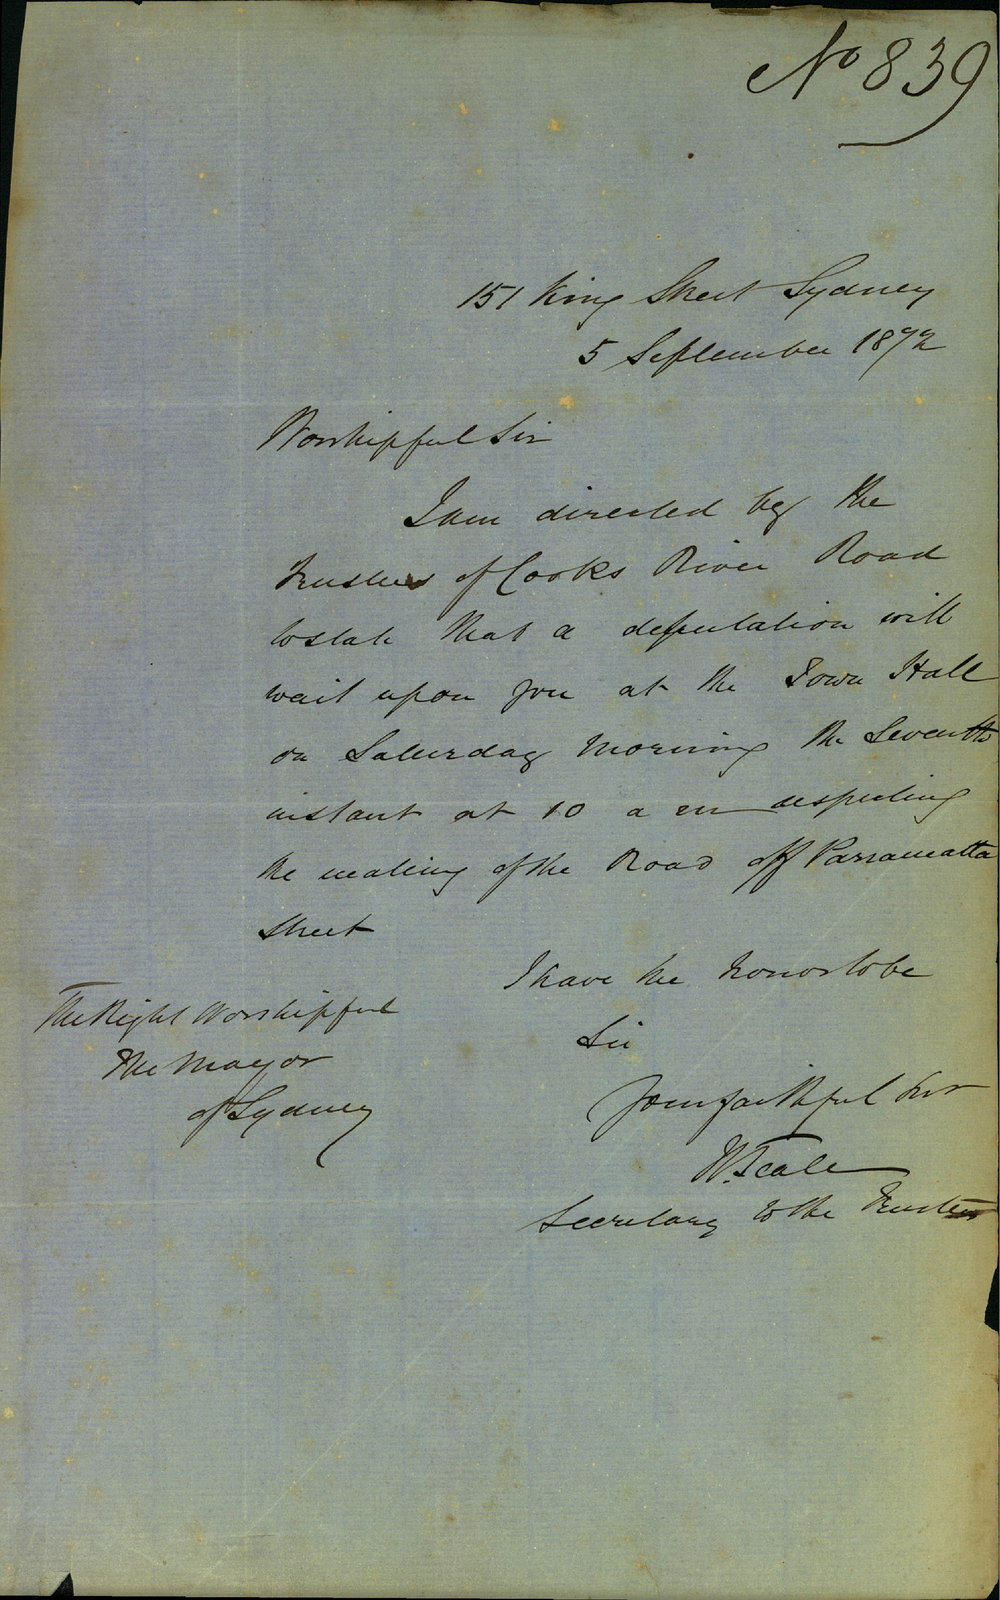 No 839
151 King Street Sydney
5 September 1872
Worshipful Sir
I am directed by the
Trustees of Cooks River Road
to state that a deputation will
wait upon you at the Town Hall
on Saturday Morning the Seventh
instant at 10 a m respecting
the making of the Road off Parramatta
Street
I have the honor to be
Sir
Your faithful Svt
W. Teale
Secretary to the Trustees
The Right Worshipful
The Mayor
of Sydney